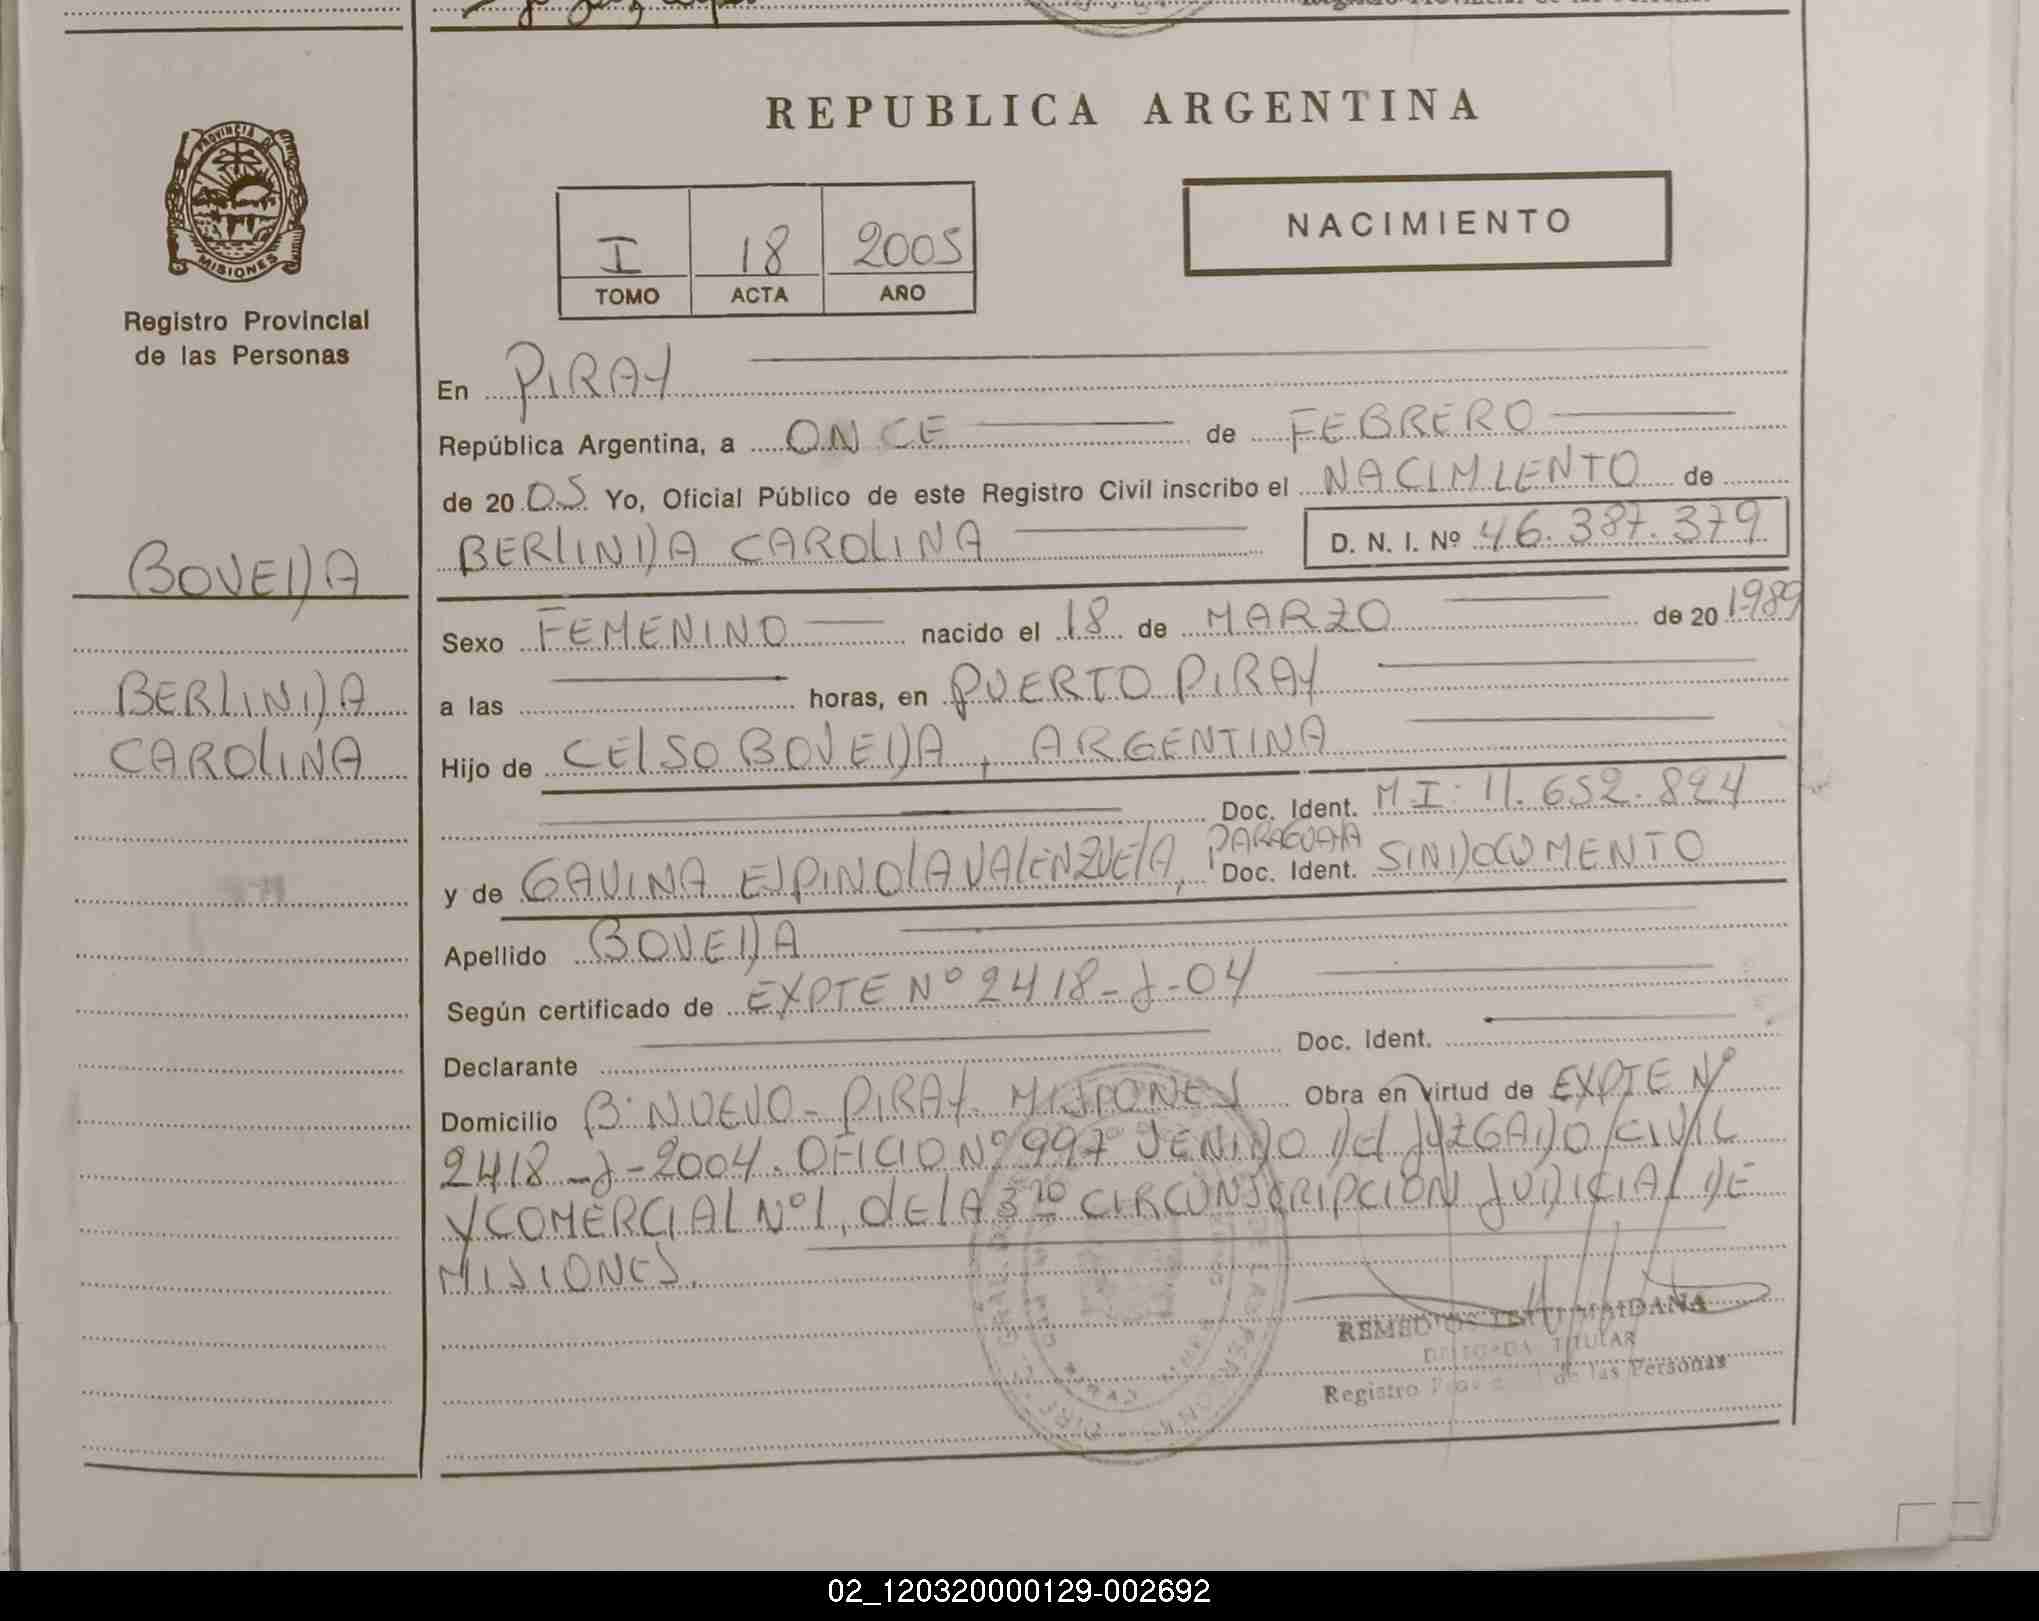 REPUBLICA ARGENTINA
PROVINCIA DE
MISIONES
Registro Provincial
de las Personas
I 18 2005
TOMO ACTA AÑO
NACIMIENTO
BOVEDA
BERLINDA
CAROLINA
En PIRAY
República Argentina, a ONCE de FEBRERO
de 20 05 Yo, Oficial Público de este Registro Civil inscribo el NACIMIENTO de
BERLINDA CAROLINA D. N. I. Nº 46.387.379
Sexo FEMENINO nacido el 18 de MARZO de 20 1989
a las horas, en PUERTO PIRAY
Hijo de CELSO BOVEDA, ARGENTINA
Doc. Ident. M I: 11.652.824
PARAGUAYA
y de GAVINA ESPINOLA VALENZUELA, Doc. Ident. SIN DOCUMENTO
Apellido BOVEDA
Según certificado de EXPTE Nº 2418-J-04
Declarante Doc. Ident.
Domicilio Bº NUEVO - PIRAY. MISIONES Obra en virtud de EXPTE Nº
2418-J-2004. OFICIO Nº 997 VENIDO DEL JUZGADO CIVIL
Y COMERCIAL Nº 1, DE LA 3ra CIRCUNSCRIPCION JUDICIAL DE
MISIONES.
MAIDANA
TITULAR
Registro de las Personas
02_120320000129-002692